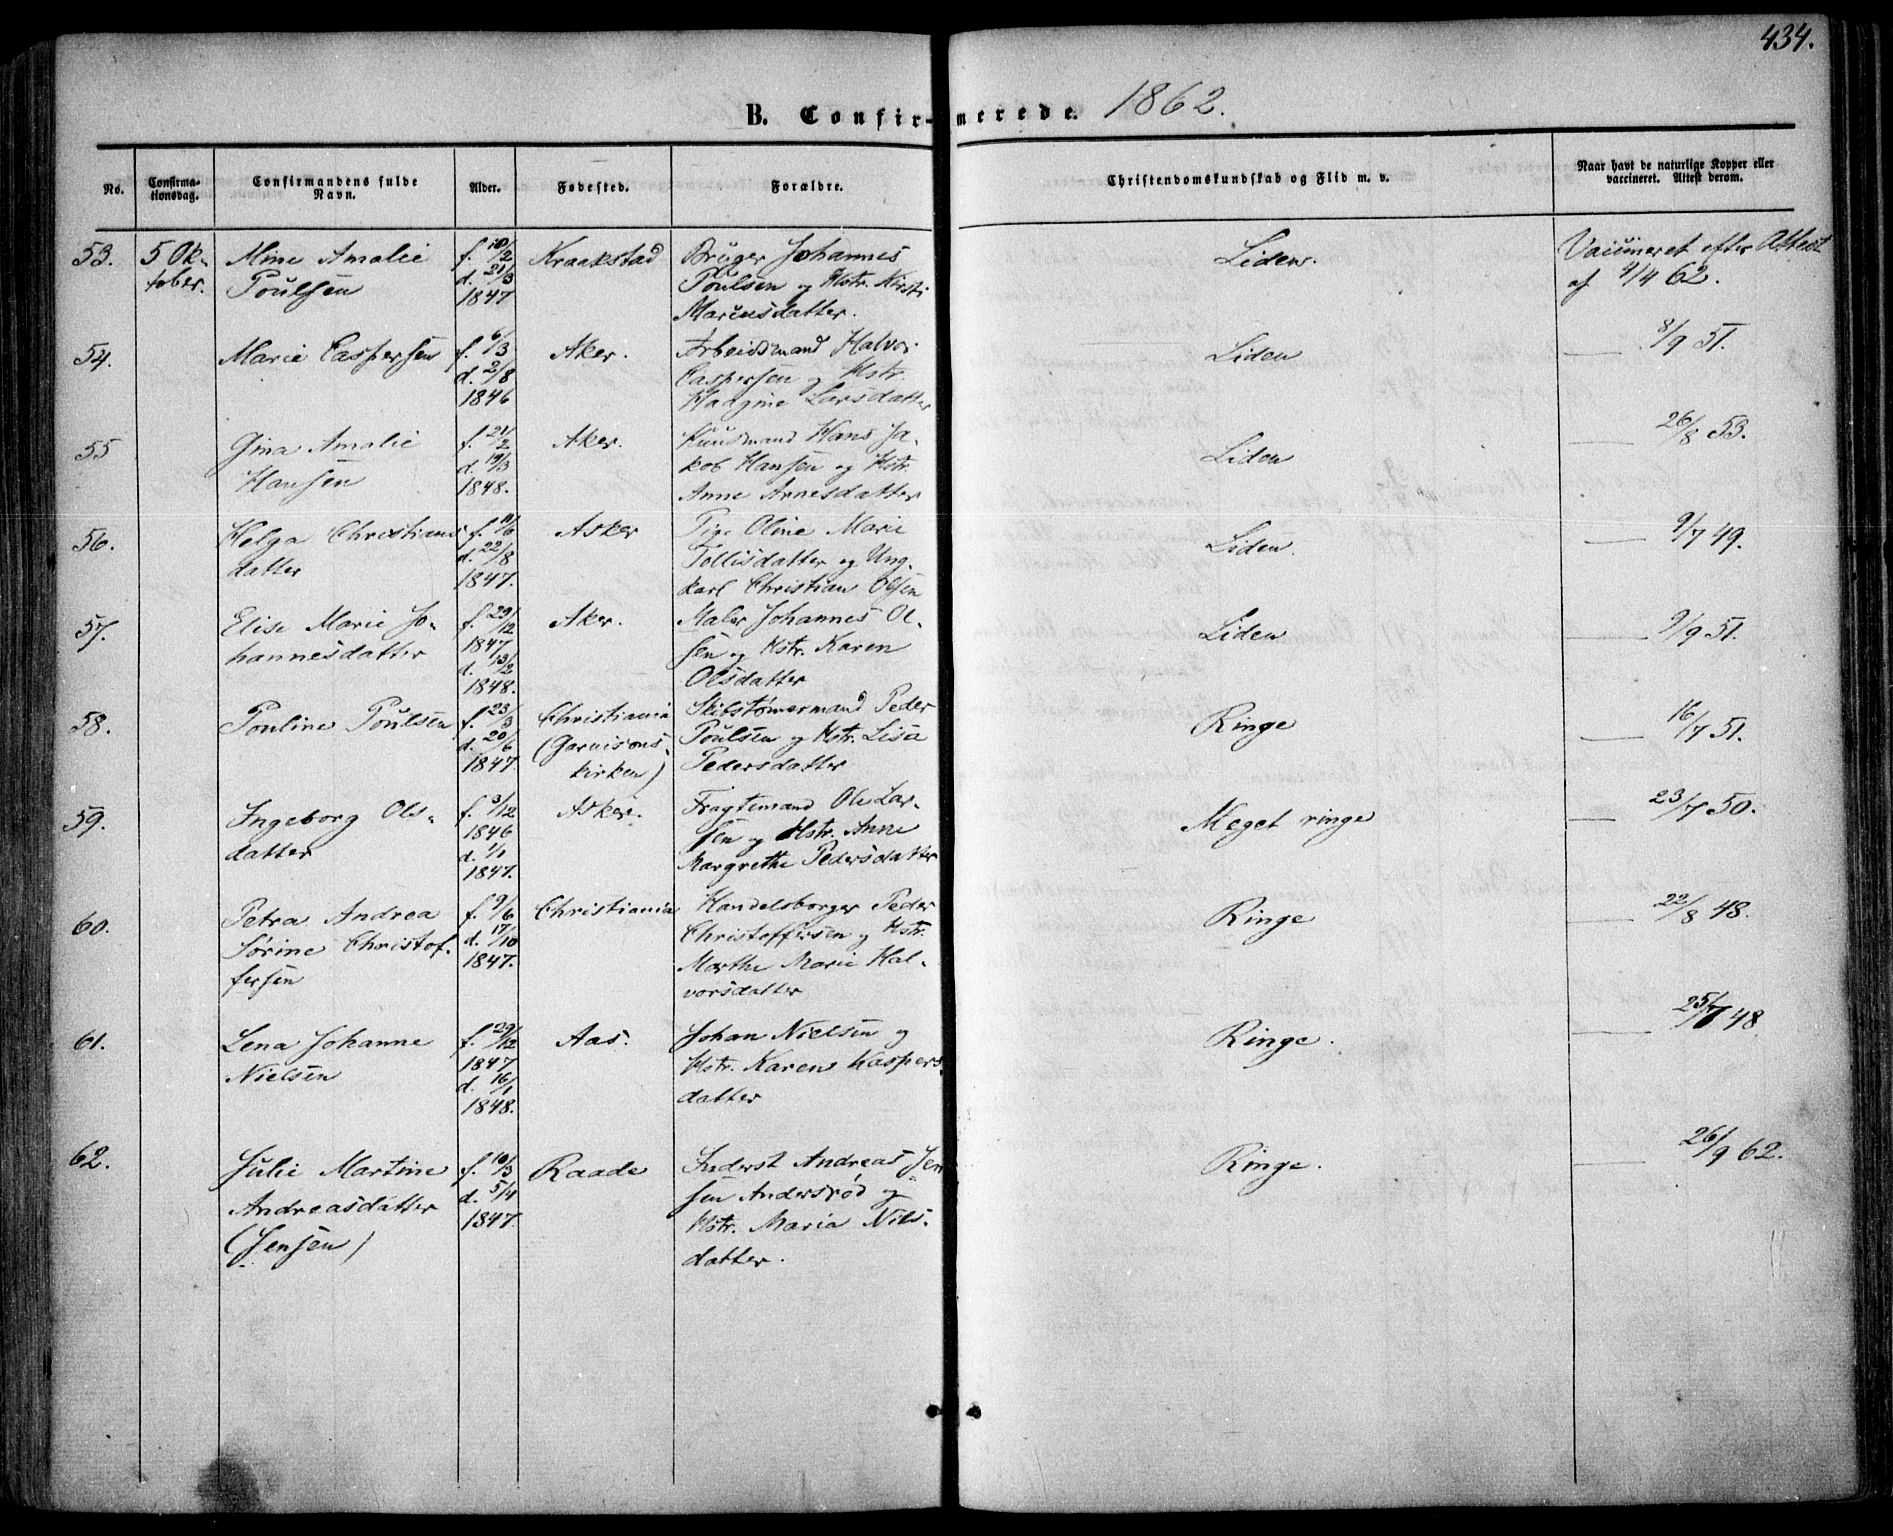 434.
B. Confir- merede. 1862.
No.
Confirma-
tionsdag.
Confirmandens fulde
Navn.
Alder.
Fødested.
Forældre.
Christendomskundskab og Flid m. v.
Naar havt de naturlige Kopper eller
vaccineret. Attest derom.
53. 5 Ok- Mine Amalie f. 10/2 Kraakstad Bruger Johannes Liden. Vaccineret efter Attest
tober. Poulsen d. 21/3 Poulsen og Hstr. Kirsti af 4/4 62.
1847 Marensdatter.
54. Marie Caspersen f. 6/3 Aker. Arbeidsmand Halvor Liden — 8/9 51.
d. 2/8 Caspersen og Hstr.
1846 Haagine Larsdatter
55 Gina Amalie f. 21/2 Aker. Huusmand Hans Ja- Liden — 26/8 53.
Hansen d. 19/3 kob Hansen og Hstr.
1848. Anne Arnesdatter
56. Helga Christians- f. 11/6 Asker Pige Oline Marie Liden. — 9/7 49.
datter d. 22/8 Tollisdatter og Ung-
1847. karl Christian Olsen
57. Elise Marie Jo- f. 29/12 Aker. Maler Johannes Ol- Liden — 9/9 51.
hannesdatter 1847 sen og Hstr. Karen
d. 13/2 Olsdatter
1848.
58. Pouline Poulsen f. 23/3 Christiania Skibstømermand Peder Ringe — 16/7 51.
d. 20/6 (Garnisons- Poulsen og Hstr. Lisa
1847. kirken) Pedersdatter
59. Ingeborg Ols- f. 3/12 Asker. Fragtemand Ole Lar- Meget ringe — 23/7 50.
datter 1846 sen og Hstr. Anne
d. 1/1 Margrethe Pedersdatter
1847.
60. Petra Andrea f. 9/6 Christiania Handelsborger Peder Ringe — 22/8 48.
Sørine Christof- d. 17/10 Christoffersen og Hstr.
fersen 1847. Marthe Marie Hal-
vorsdatter
61. Lena Johanne f. 29/12 Aas. Johan Nielsen og Ringe. — 25/7 48
Nielsen 1847 Hstr. Karen Kaspers-
d. 16/1 datter
1848.
62. Julie Martine f. 10/3 Raade Inderst Andreas Jen- Ringe. — 26/9 62.
Andreasdatter d. 5/4 sen Andersrød og
(Jensen) 1847. Hstr. Maria Nils-
datter.